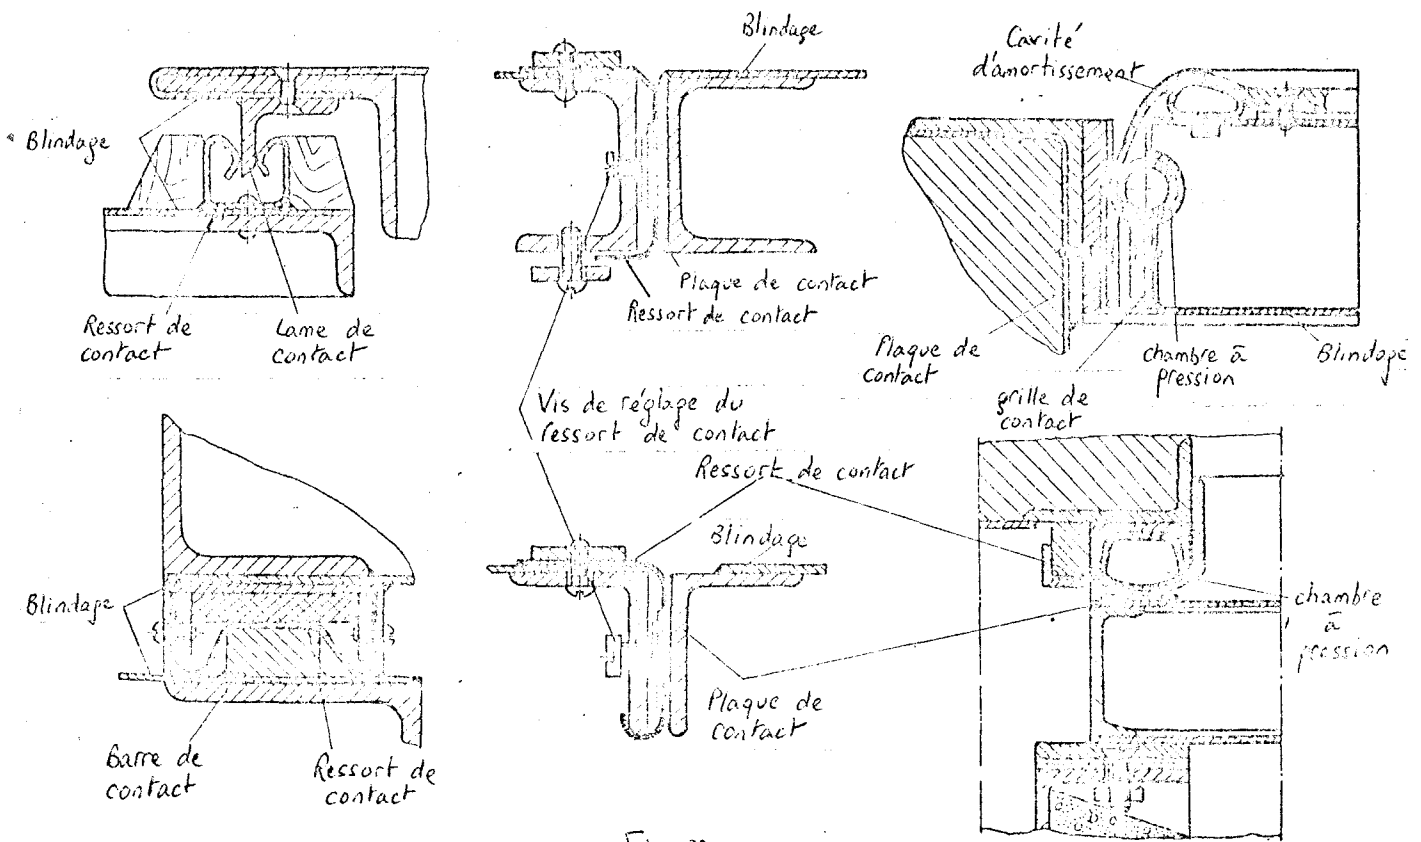 Blindage
Ressort de
contact
Lame de
contact
Blindage
Plaque de contact
Ressort de contact
Cavité
d'amortissement
Plaque de
contact
chambre à
pression
Blindage
grille de
contact
Vis de réglage du
ressort de contact
Ressort de contact
Blindage
Barre de
contact
Ressort de
contact
Blindage
Plaque de
contact
chambre
à
pression